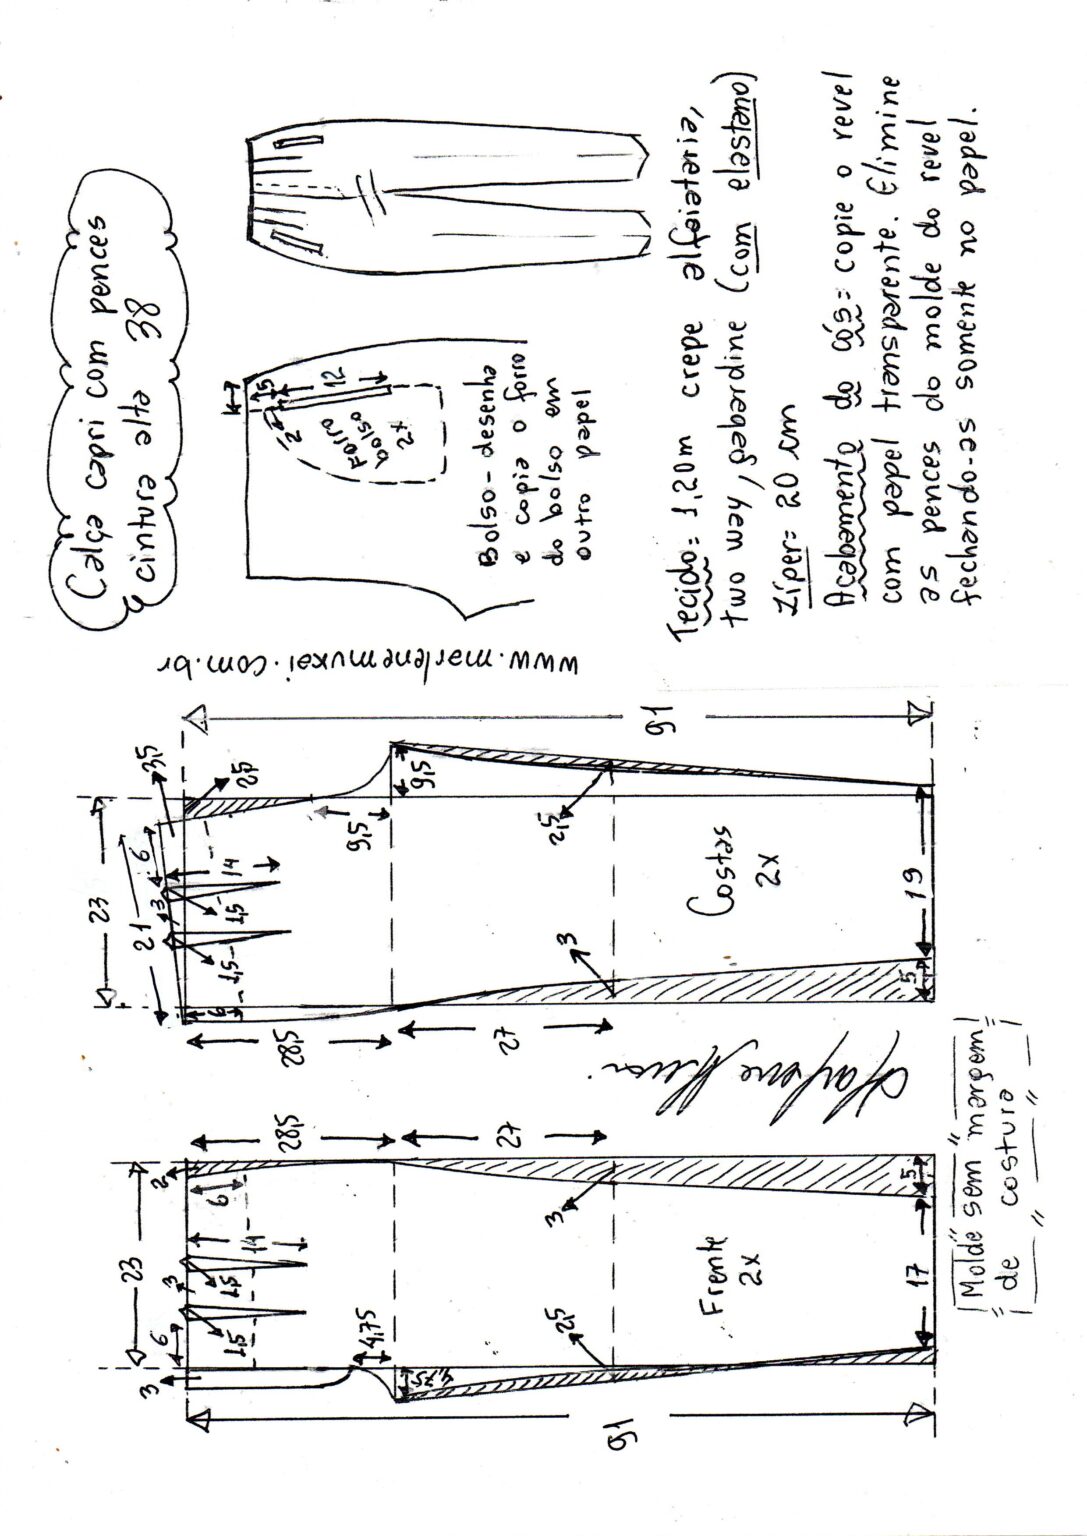 Calça capri com pences
cintura alta 38
4
1,5
12
2
Forro
bolso
2x
Bolso-desenha
e copia o forro
do bolso em
outro papel
Tecido= 1,20m crepe alfaiataria,
two way, gabardine (com elastano)
Zíper= 20 cm
Acabamento do cós= copie o revel
com papel transparente. Elimine
as pences do molde do revel
fechando-as somente no papel.
www.marlenemukai.com.br
23
21
6
3
3,5
2,5
14
1,5
1,5
6
9,5
9,5
28,5
27
2,5
3
91
Costas
2x
19
5
23
2
6
14
3
1,5
1,5
6
3
4,75
4,75
28,5
27
3
2,5
91
Frente
2x
17
5
Molde sem margem
de costura